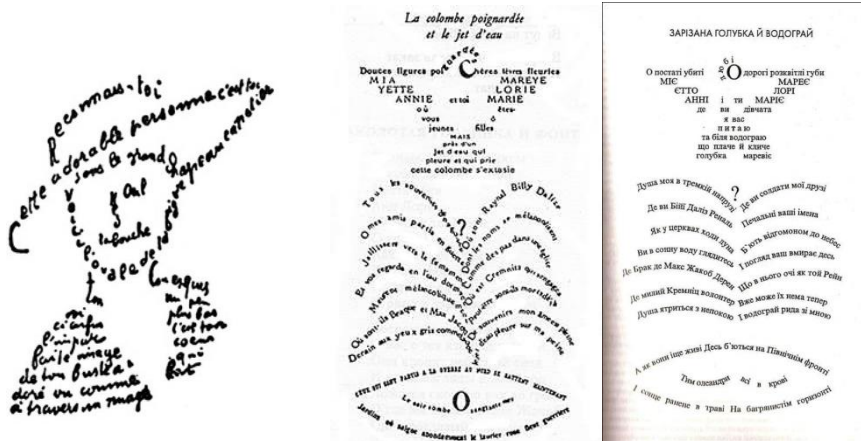 Reconnais-toi
Cette adorable personne c'est toi
Sous le grand chapeau canotier
Œil
Nez
la bouche
Voici l'ovale de ta figure
Ton cou exquis
un peu
plus bas
c'est ton
coeur
qui
bat
ci enfin
l'imparfaite image
de ton buste a
doré vu comme
à travers un nuage
La colombe poignardée
et le jet d'eau
Douces figures poignardées Chères lèvres fleuries
MIA MAREYE
YETTE LORIE
ANNIE et toi MARIE
où êtes-
vous ô
jeunes filles
MAIS
près d'un
jet d'eau qui
pleure et qui prie
cette colombe s'extasie
Tous les souvenirs de naguère
O mes amis partis en guerre
Jaillissent vers le firmament
Et vos regards en l'eau dormant
Meurent mélancoliquement
Où sont-ils Braque et Max Jacob
Derain aux yeux gris comme l'aube
?
Où sont Raynal Billy Dalize
Dont les noms se mélancolisent
Comme des pas dans une église
Où est Cremnitz qui s'engagea
Peut-être sont-ils morts déjà
De souvenirs mon âme est pleine
Le jet d'eau pleure sur ma peine
CEUX QUI SONT PARTIS A LA GUERRE AU NORD SE BATTENT MAINTENANT
Le soir tombe O sanglante mer
Jardins où saigne abondamment le laurier rose fleur guerrière
ЗАРІЗАНА ГОЛУБКА Й ВОДОГРАЙ
О постаті убиті любі О дорогі розквітлі губи
МІЄ МАРЕЄ
ЄТТО ЛОРІ
АННІ і ти МАРІЄ
де ви дівчата
я вас
питаю
та біля водограю
що плаче й кличе
голубка маревіє
Душа моя в тремкій напрузі
Де ви Біллі Даліз Реналь
Як у церквах ходи луна
Ви в сонну воду глядитесь
Де Брак де Макс Жакоб Дерен
Де милий Кремніц волонтер
Душа ятриться з непокою
?
Де ви солдати мої друзі
Печальні ваші імена
Б'ють відгомоном до небес
І погляд ваш вмирає десь
Що в нього очі як той Рейн
Вже може їх нема тепер
І водограй рида зі мною
А як вони іще живі Десь б'ються на Північнім фронті
Тим олеандри всі в крові
І сонце ранене в траві На багрянистім горизонті